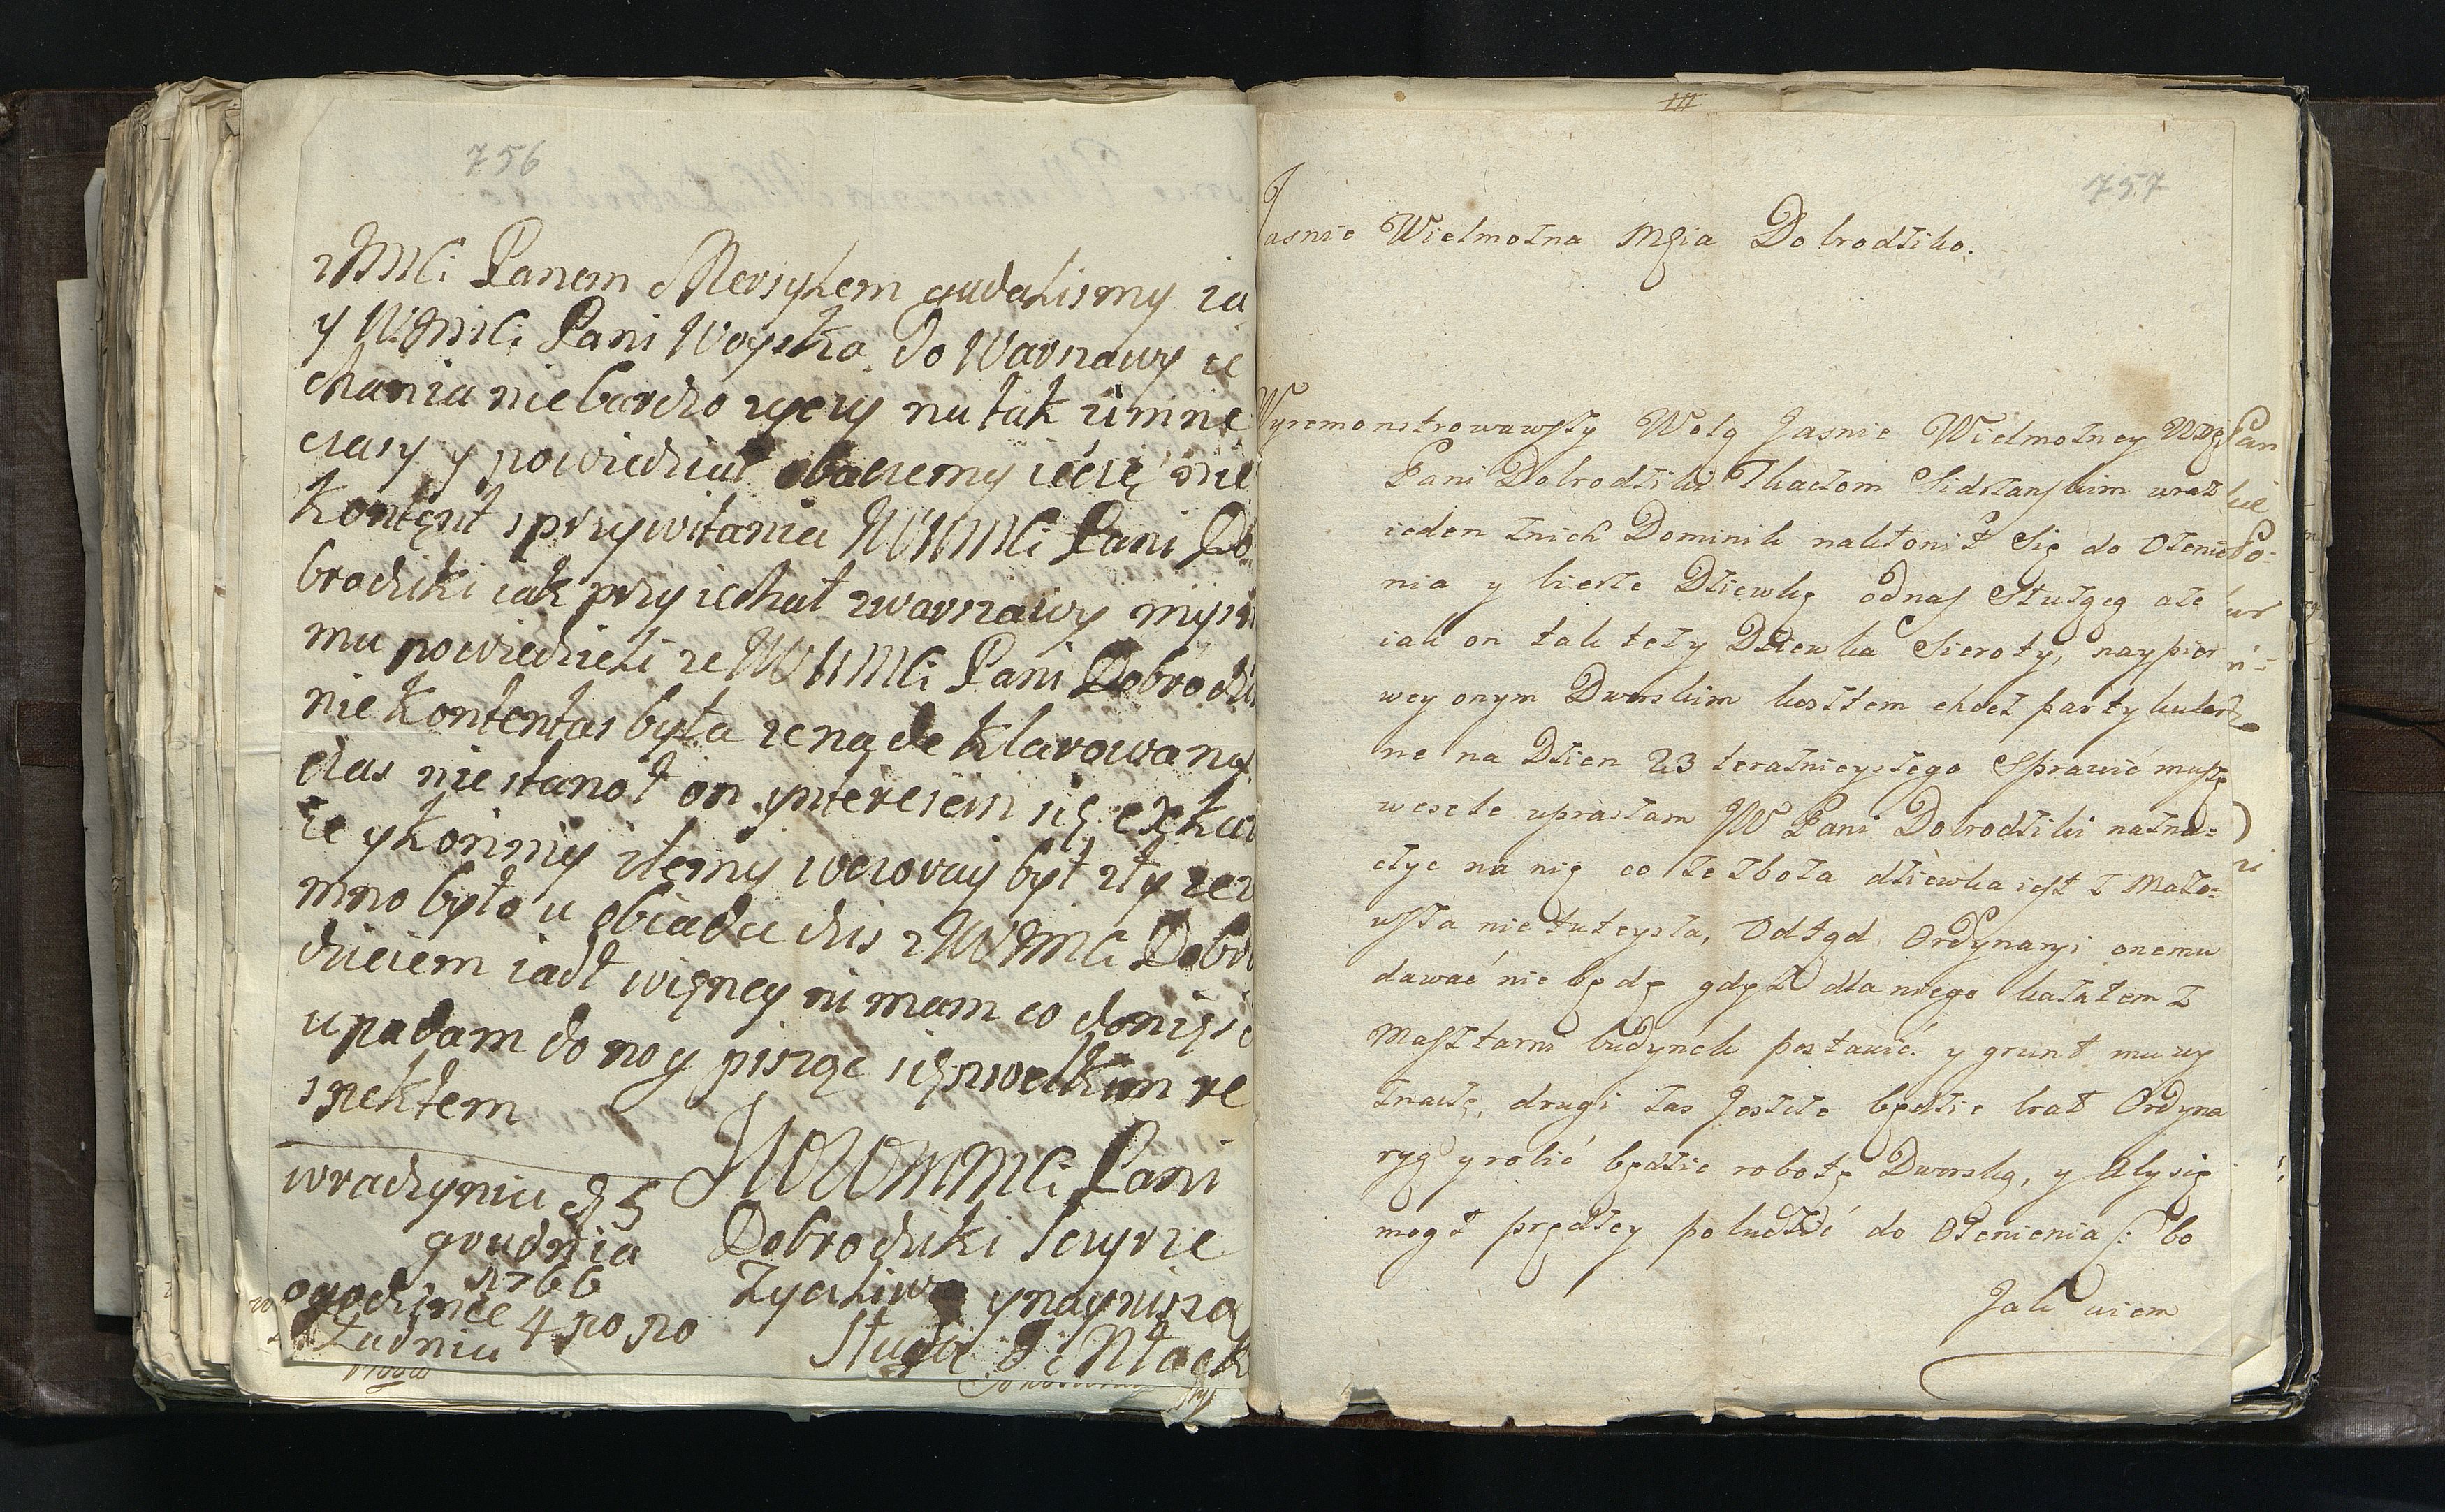 756
zJMCi Panem Mersykem gadalismy ia
y WJMCi Pani Woyska do Warszawy ie
chania niebardzo zyczy na tak zimne
czasy y powiedział obaczemy iescze nie
kontęnt sprzywitania WMMCi Pani Do
brodziki iak przyiechał zwarszawy mysmy
mu powiedzieli ze WMMCi Pani Dobrodzi
nie kontentas była zeną de klarowany
czas nie stanoł on ynteresem się exku
ie ykonmi złemy wczoray był zły ze
mno było u obiadu dzis zWJMCi Dobro
dzieiem iadł więncy ni mam co doniesc
upadam do nog pisząc się zwelkim re
spektem
wradzyniu d 5
grudnia
1766
ogodzinie 4 popo
łudniu
JWWMMCi Pani
Dobrodziki scyrze
życzliwa ynaynisza
sługa
III
757
Jasnie Wielmożna Mgia Dobrodziko.
Wyremonstrowawszy Wolą Jasnie Wielmożney
Pani Dobrodziki Tkaczom Sidrzanskim wraz
ieden znich Dominik nakłonił Się do Ożenie
nia y bierze Dziewkę odnas Służącą ale
iak on tak teży Dziewka Sieroty, naypier
wey onym Dworskim kosztem choć partykular
ne na Dzien 23 teraznieyszego Sprawić muszę
wesele upraszam JW Pani Dobrodziki nazna=
czyc na nię co ze zboża dziewka iest z Mazo=
wsza nie tuteysza, Odtąd Ordynaryi onemu
dawać nie będę gdyż dla niego kazałem z
Masztarni budynek postawić y grunt mu wy
znaczę, drugi zas Jeszcze będzie brał Ordyna
ryą y robić będzie robotę Dworską, y Abysię
mogł prędzey pobudzić do Ożenienia /: bo
Jak wiem